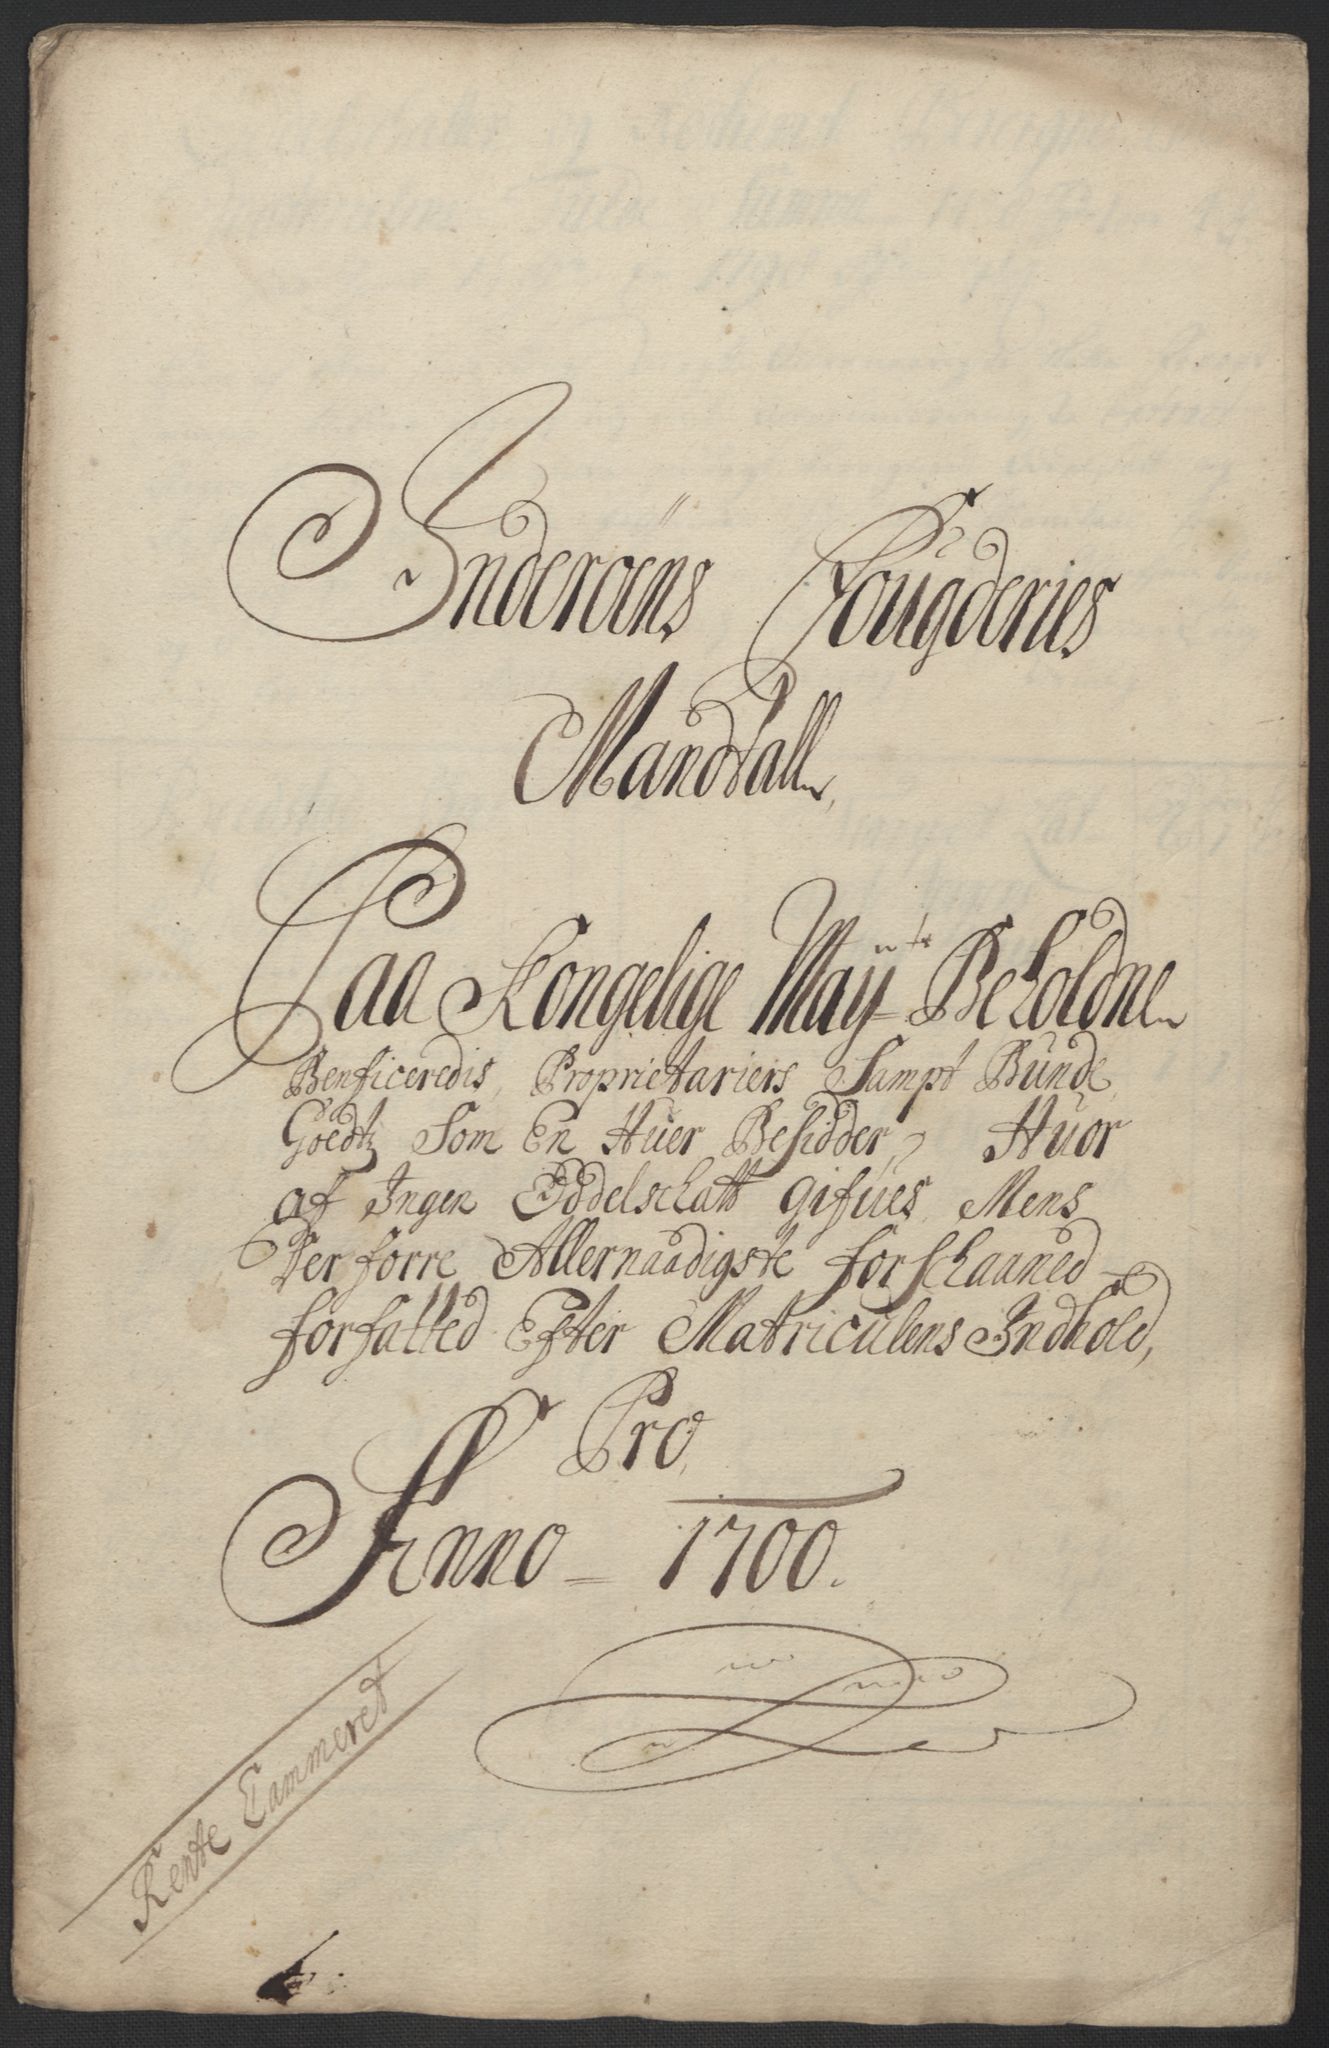 Inderöens Fougderies
Mandtall,
Paa Kongelige May:ts Beholdne
Benficeredis, Proprietariers Sampt Bünde
Goedtz Som En Hüer Besidder, Hüor
af Ingen Oddelschatt gifües, Mens
Der forre Allernaadigste forschaaned
forfatted Efter Matriculens Indhold,
Pro,
Anno 1700.
Rente Cammeret